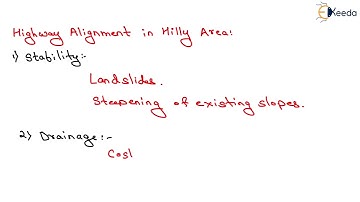 Keeda
Highway Alignment in Hilly Area:
1) Stability:-
Landslides.
Steepening of existing slopes.
2) Drainage:-
Cosl